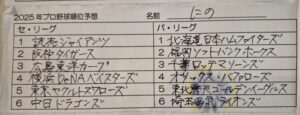 2025年プロ野球順位予想 名前 にの
セ・リーグ パ・リーグ
1 読売ジャイアンツ 1 北海道日本ハムファイターズ
2 阪神タイガース 2 福岡ソフトバンクホークス
3 広島東洋カープ 3 千葉ロッテマリーンズ
4 横浜DeNAベイスターズ 4 オリックス・バファローズ
5 東京ヤクルトスワローズ 5 東北楽天ゴールデンイーグルス
6 中日ドラゴンズ 6 埼玉西武ライオンズ